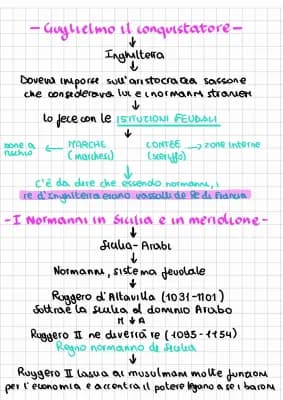 - Guglielmo il conquistatore -
Inghilterra
Doveva imporsi sull'aristocrazia sassone
che considerava lui e i normanni stranieri
lo fece con le ISTITUZIONI FEUDALI
zone a rischio ← MARCHE (marchesi) CONTEE (sceriffo) → zone interne
C'è da dire che essendo normanni, i
re d'Inghilterra erano vassalli del Re di Francia
- I Normanni in Sicilia e in meridione -
Sicilia - Arabi
Normanni, sistema feudale
Ruggero d'Altavilla (1031-1101)
Sottrae la Sicilia al dominio Arabo
Ruggero II ne diverrà re (1095-1154)
Regno normanno di Sicilia
Ruggero II lascia ai musulmani molte funzioni
per l'economia e accentra il potere legano a se i baroni